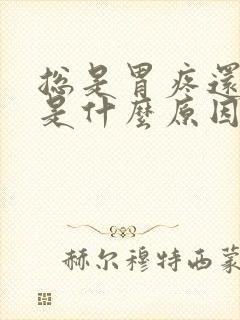 总是胃疼還
是什麼原因
赫尔穆特西蒙